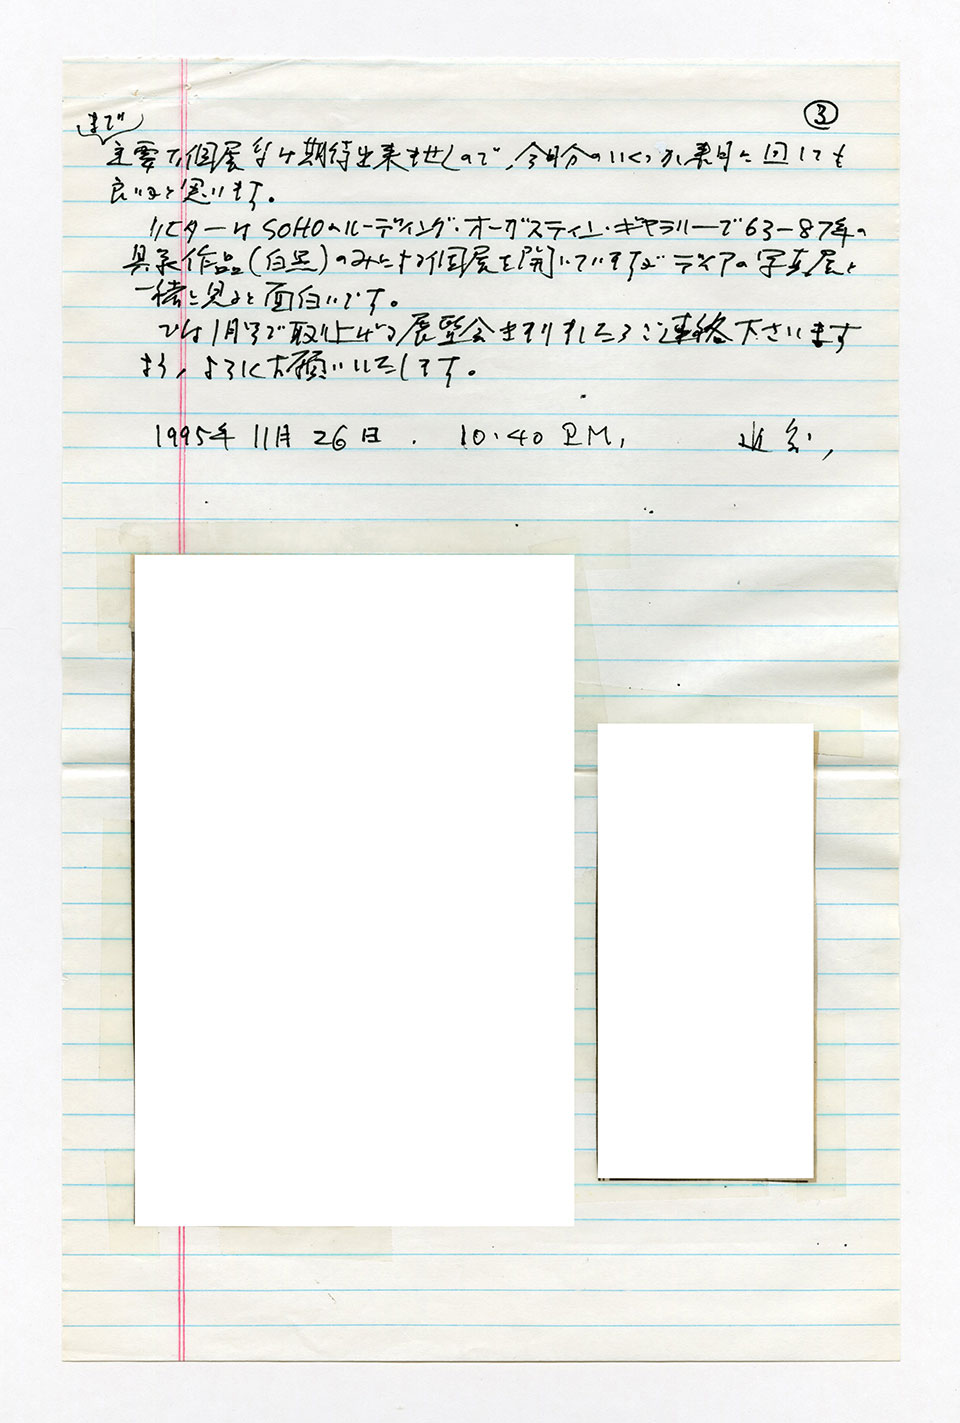 ③
まで
主要な個展などは期待出来ませんので、今月分のいくつか来月に回しても
良いかと思います。
リヒターはSOHOのルーディング・オーガスティン・ギャラリーで63−87年の
具象作品(白黒)のみによる個展を開いていますがディアの写真展と
一緒に見ると面白いです。
では1月号で取り上げる展覧会決まりましたらご連絡下さいます
よう、よろしくお願いいたします。
1995年11月26日. 10:40 P.M.